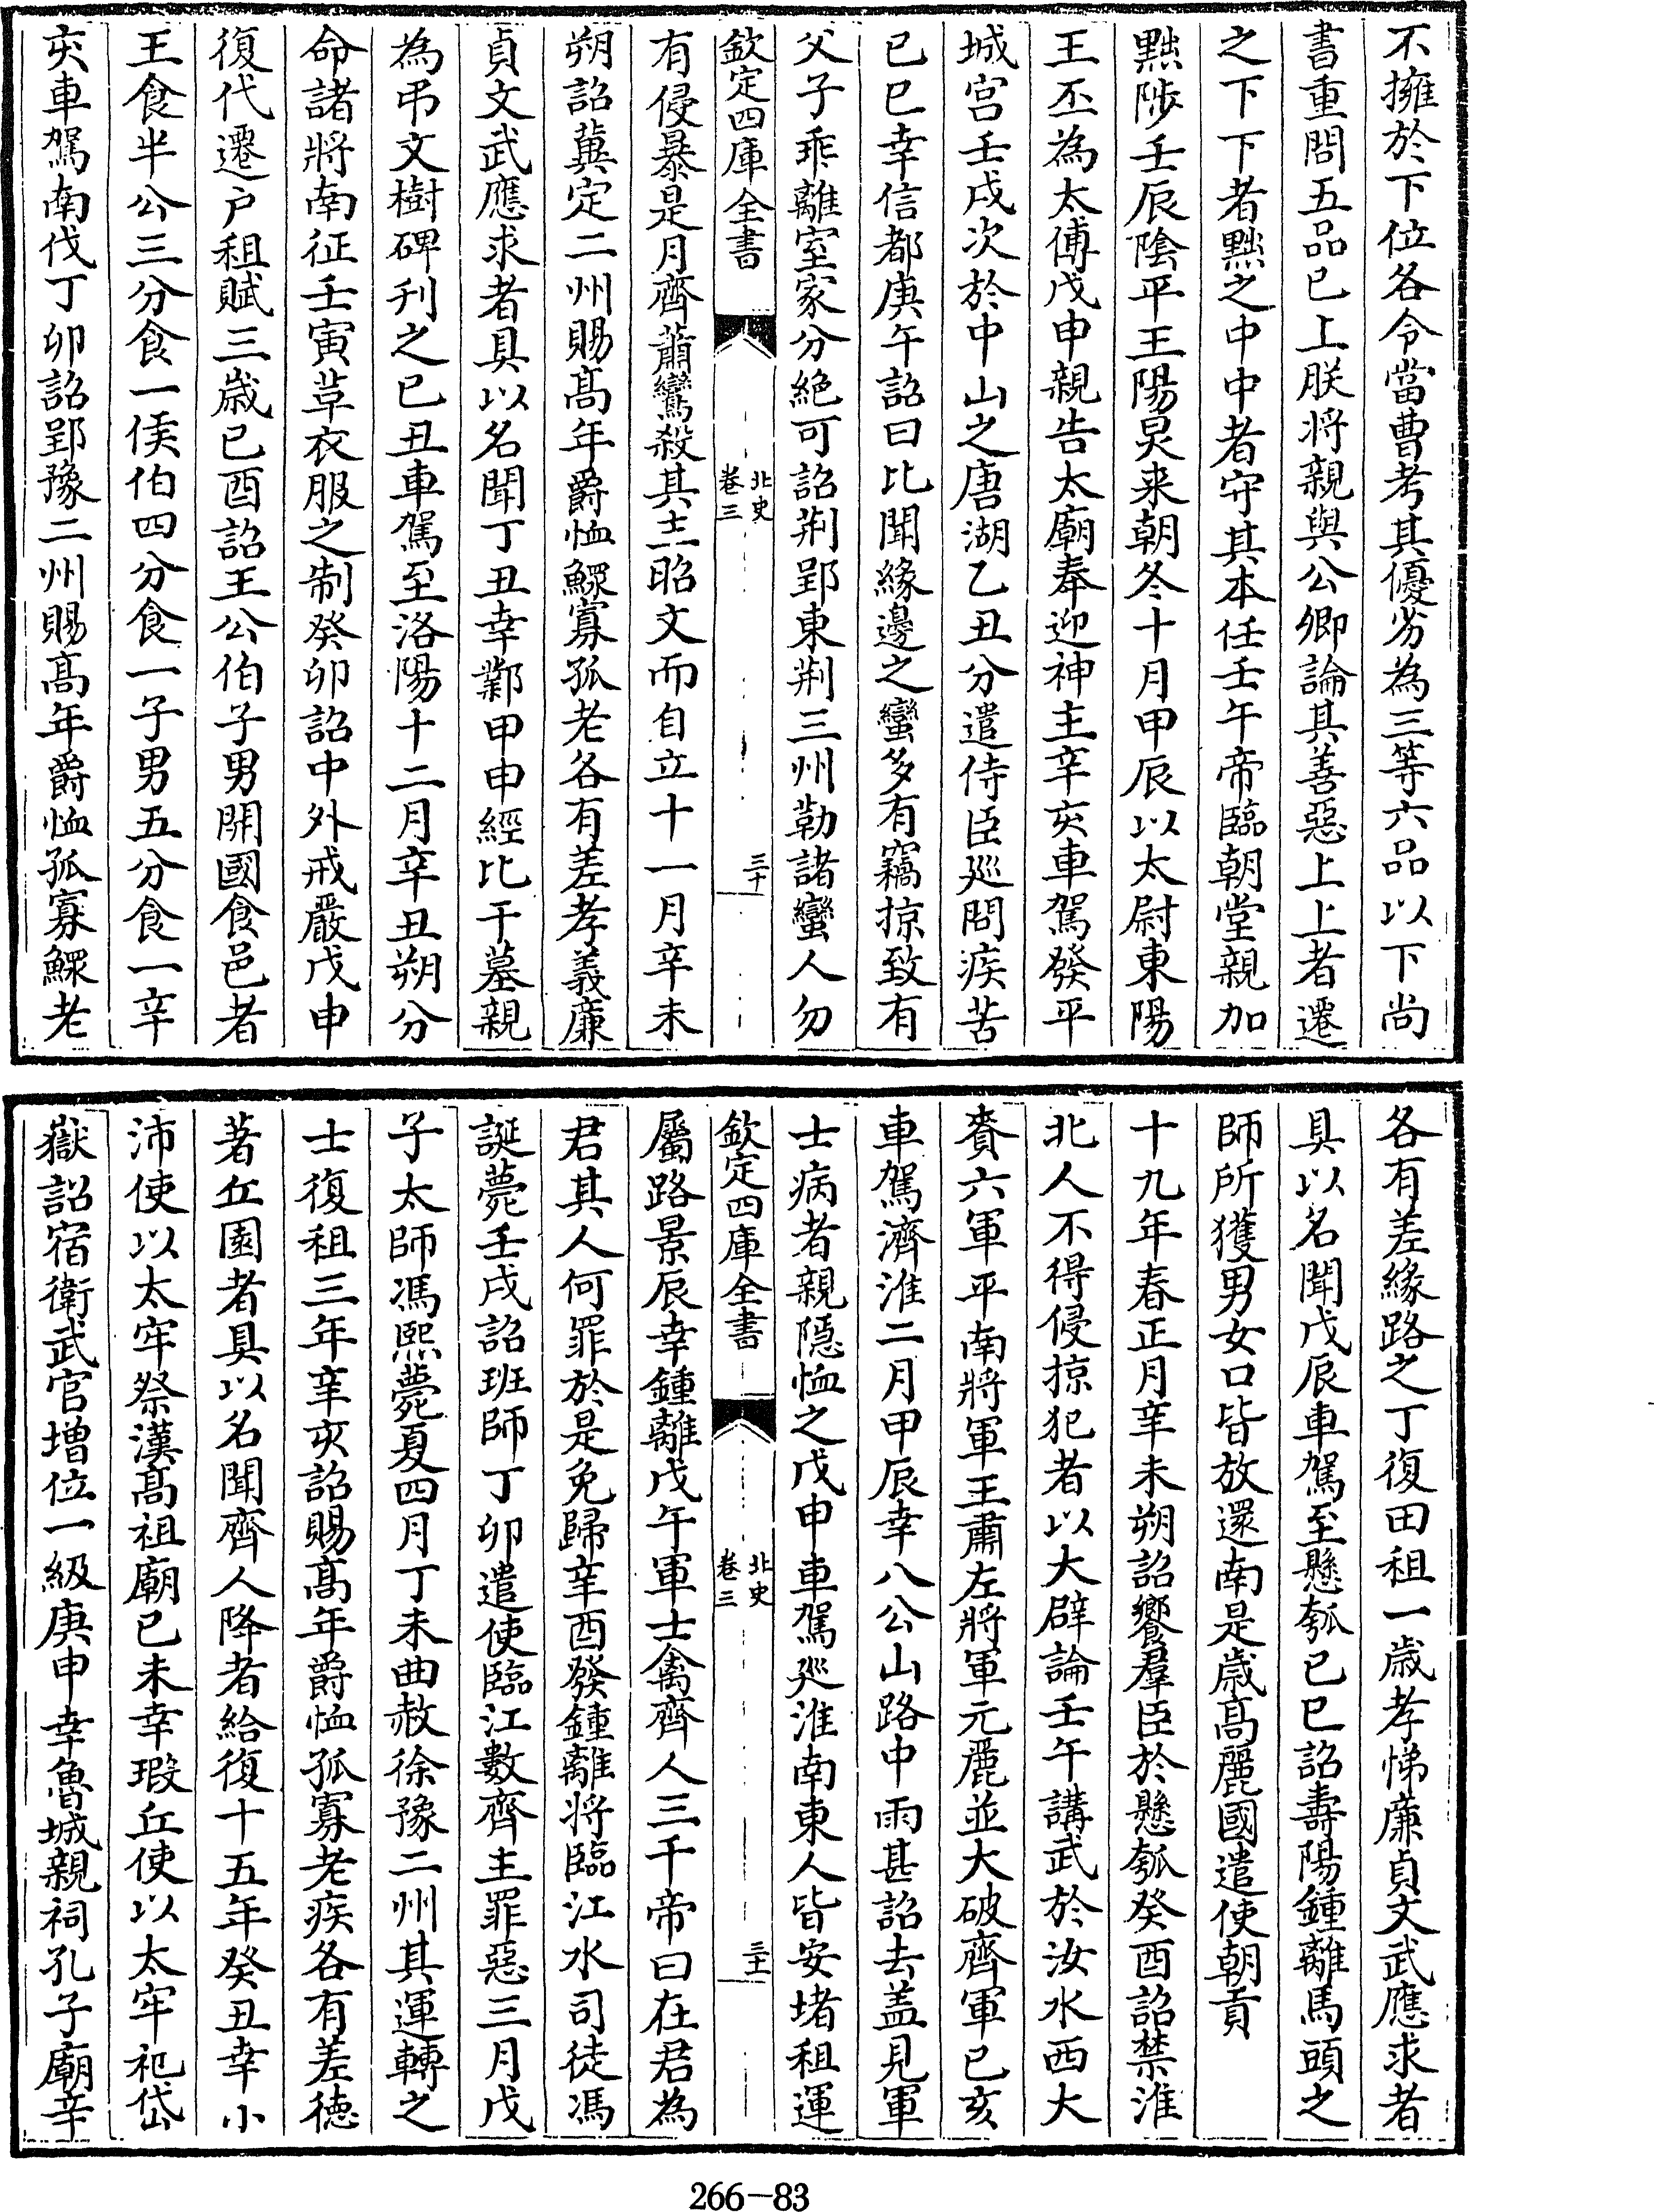 不擁於下位各令當曹考其優劣為三等六品以下尚
書重問五品已上朕將親與公卿論其善惡上上者遷
之下下者黜之中中者守其本任壬午帝臨朝堂親加
黜陟壬辰陰平王陽炅来朝冬十月甲辰以太尉東陽
王丕為太傅戊申親告太廟奉迎神主辛亥車駕發平
城宫壬戌次於中山之唐湖乙丑分遣侍臣廵問疾苦
已巳幸信都庚午詔曰比聞緣邊之蠻多有竊掠致有
父子乖離室家分絶可詔荆郢東荆三州勒諸蠻人勿
欽定四庫全書
北史
卷三
三十
有侵暴是月齊蕭鸞殺其主昭文而自立十一月辛未
朔詔冀定二州賜髙年爵恤鰥寡孤老各有差孝義廉
貞文武應求者具以名聞丁丑幸鄴甲申經比干墓親
為弔文樹碑刋之已丑車駕至洛陽十二月辛丑朔分
命諸將南征壬寅草衣服之制癸卯詔中外戒嚴戊申
復代遷户租賦三歳已酉詔王公伯子男開國食邑者
王食半公三分食一侯伯四分食一子男五分食一辛
亥車駕南伐丁卯詔郢豫二州賜髙年爵恤孤寡鰥老
各有差緣路之丁復田租一歳孝悌廉貞文武應求者
具以名聞戊辰車駕至懸瓠已巳詔壽陽鍾離馬頭之
師所獲男女口皆放還南是歳髙麗國遣使朝貢
十九年春正月辛未朔詔饗羣臣於懸瓠癸酉詔禁淮
北人不得侵掠犯者以大辟論壬午講武於汝水西大
賚六軍平南將軍王肅左將軍元麗並大破齊軍已亥
車駕濟淮二月甲辰幸八公山路中雨甚詔去盖見軍
士病者親隱恤之戊申車駕廵淮南東人皆安堵租運
欽定四庫全書
北史
卷三
三十一
屬路景辰幸鍾離戊午軍士禽齊人三千帝曰在君為
君其人何罪於是免歸辛酉發鍾離将臨江水司徒馮
誕薨壬戌詔班師丁卯遣使臨江數齊主罪惡三月戊
子太師馮熙薨夏四月丁未曲赦徐豫二州其運轉之
士復租三年辛亥詔賜髙年爵恤孤寡老疾各有差徳
著丘園者具以名聞齊人降者給復十五年癸丑幸小
沛使以太牢祭漢髙祖廟已未幸瑕丘使以太牢祀岱
嶽詔宿衛武官増位一級庚申幸魯城親祠孔子廟辛
266—83